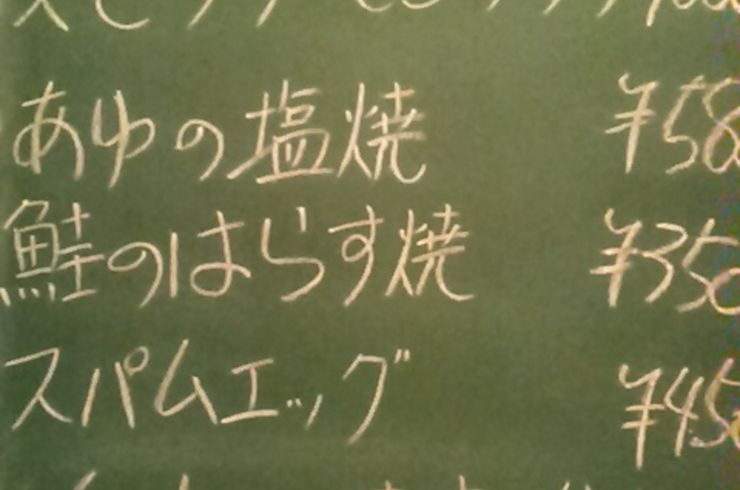 あゆの塩焼 ¥58
鮭のはらす焼 ¥350
スパムエッグ ¥450